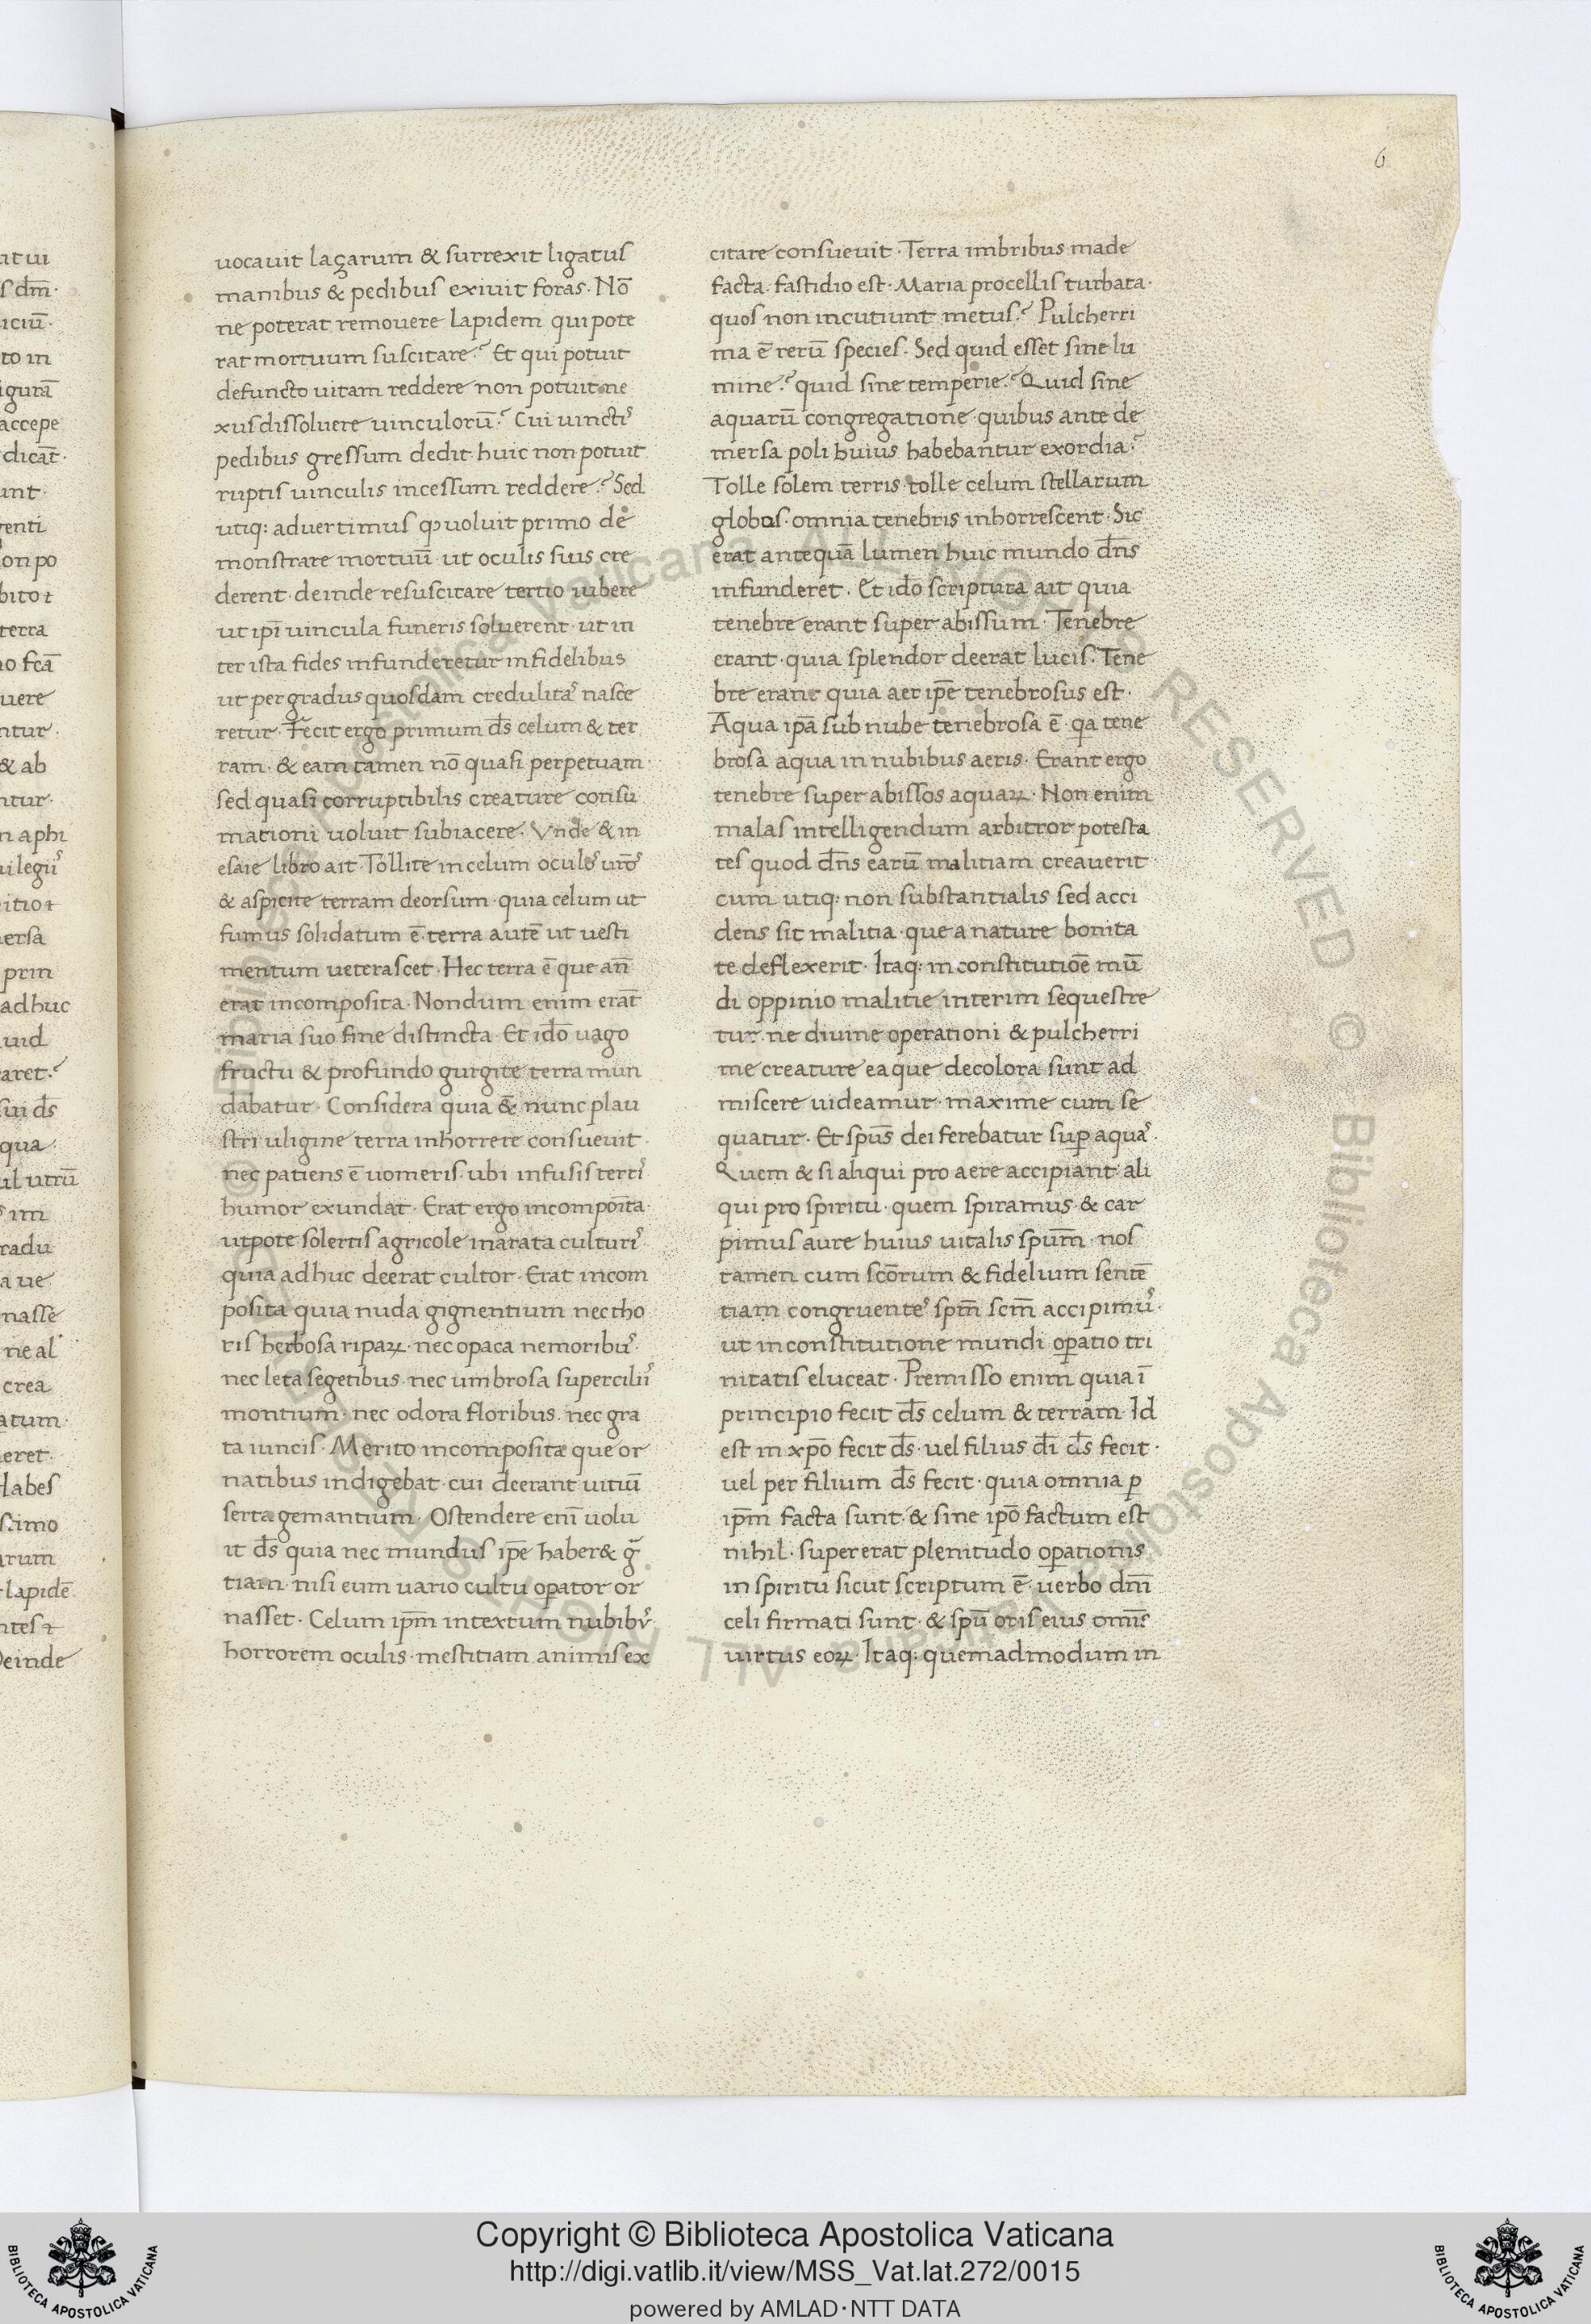 6
uocauit laçarum & surrexit ligatus
manibus & pedibus exiuit foras· Nō
ne poterat remouere lapidem qui pote
rat mortuum suscitare? Et qui potuit
defuncto uitam reddere non potuit ne
xus dissoluere uinculorū? Cui uinctis
pedibus gressum dedit· huic non potuit
ruptis uinculis incessum reddere? Sed
utiq: aduertimus ꝙ uoluit primo de
monstrare mortuū ut oculis suis cre
derent· deinde resuscitare tertio iubere
ut ipī uincula funeris soluerent· ut in
ter ista fides infunderetur infidelibus
ut per gradus quosdam credulitas nasce
retur· Fecit ergo primum d̄s celum & ter
ram· & eam tamen nō quasi perpetuam·
sed quasi corruptibilis creature consu
mationi uoluit subiacere· Vnde & in
esaie libro ait· Tollite in celum oculos uros
& aspicite terram deorsum· quia celum ut
fumus solidatum ē· terra autē ut uesti
mentum ueterascet· Hec terra ē que an̄
erat incomposita· Nondum enim erāt
maria suo fine distincta· Et ido uago
fructu & profundo gurgite terra mun
dabatur· Considera quia & nunc plau
stri uligine terra inhorrere consueuit·
nec patiens ē uomeris· ubi infusis terris
humor exundat· Erat ergo incomposita·
utpote solertis agricole inarata culturis·
quia adhuc deerat cultor· Erat incom
posita quia nuda gignentium nec tho
ris herbosa ripaꝝ· nec opaca nemoribus·
nec leta segetibus· nec umbrosa superciliis
montium· nec odora floribus· nec gra
ta iuncis· Merito incomposita que or
natibus indigebat· cui deerant uitiū
serta gemantium· Ostendere enī uolu
it d̄s quia nec mundus ipe haber& g̃
tiam· nisi eum uario cultu oꝑator or
nasset· Celum ipm̄ intextum nubibus
horrorem oculis· mestitiam animis ex
citare consueuit· Terra imbribus made
facta· fastidio est· Maria procellis turbata·
quos non incutiunt metus? Pulcherri
ma ē rerū species· Sed quid esset sine lu
mine? quid sine temperie? Quid sine
aquarū congregatione quibus ante de
mersa poli huius habebantur exordia?
Tolle solem terris· tolle celum stellarum
globos· omnia tenebris inhorrescent· Sic
erat antequā lumen huic mundo dn̄s
infunderet· Et ido scriptura ait quia
tenebre erant super abissum· Tenebre
erant· quia splendor deerat lucis· Tene
bre erant quia aer ipē tenebrosus est·
Aqua ipā sub nube tenebrosa ē· qa tene
brosa aqua in nubibus aeris· Erant ergo
tenebre super abissos aquaꝝ· Non enim
malas intelligendum arbitror potesta
tes quod dn̄s earū malitiam creauerit·
cum utiq: non substantialis sed acci
dens sit malitia· que a nature bonita
te deflexerit· Itaq: in constitutiōe mū
di oppinio malitie interim sequestre
tur· ne diuine operationi & pulcherri
me creature ea que decolora sunt ad
miscere uideamur· maxime cum se
quatur· Et spūs dei ferebatur suꝑ aquas·
Quem & si aliqui pro aere accipiant· ali
qui pro spiritu· quem spiramus & car
pimus aure huius uitalis spūm· nos
tamen cum scōrum & fidelium sentē
tiam congruentes spm̄ scm̄ accipimus·
ut in constitutione mundi oꝑatio tri
nitatis eluceat· Premisso enim quia ī
principio fecit d̄s celum & terram· Id
est in xp̄o fecit d̄s· uel filius dī d̄s fecit·
uel per filium d̄s fecit· quia omnia ꝑ
ipm̄ facta sunt· & sine ipō factum est
nihil· supererat plenitudo oꝑationis
in spiritu sicut scriptum ē· uerbo dm̄
celi firmati sunt· & spū oris eius omīs
uirtus eoꝝ· Itaq: quemadmodum in
Copyright © Biblioteca Apostolica Vaticana
http://digi.vatlib.it/view/MSS_Vat.lat.272/0015
powered by AMLAD·NTT DATA
BIBLIOTECA APOSTOLICA VATICANA
BIBLIOTECA APOSTOLICA VATICANA